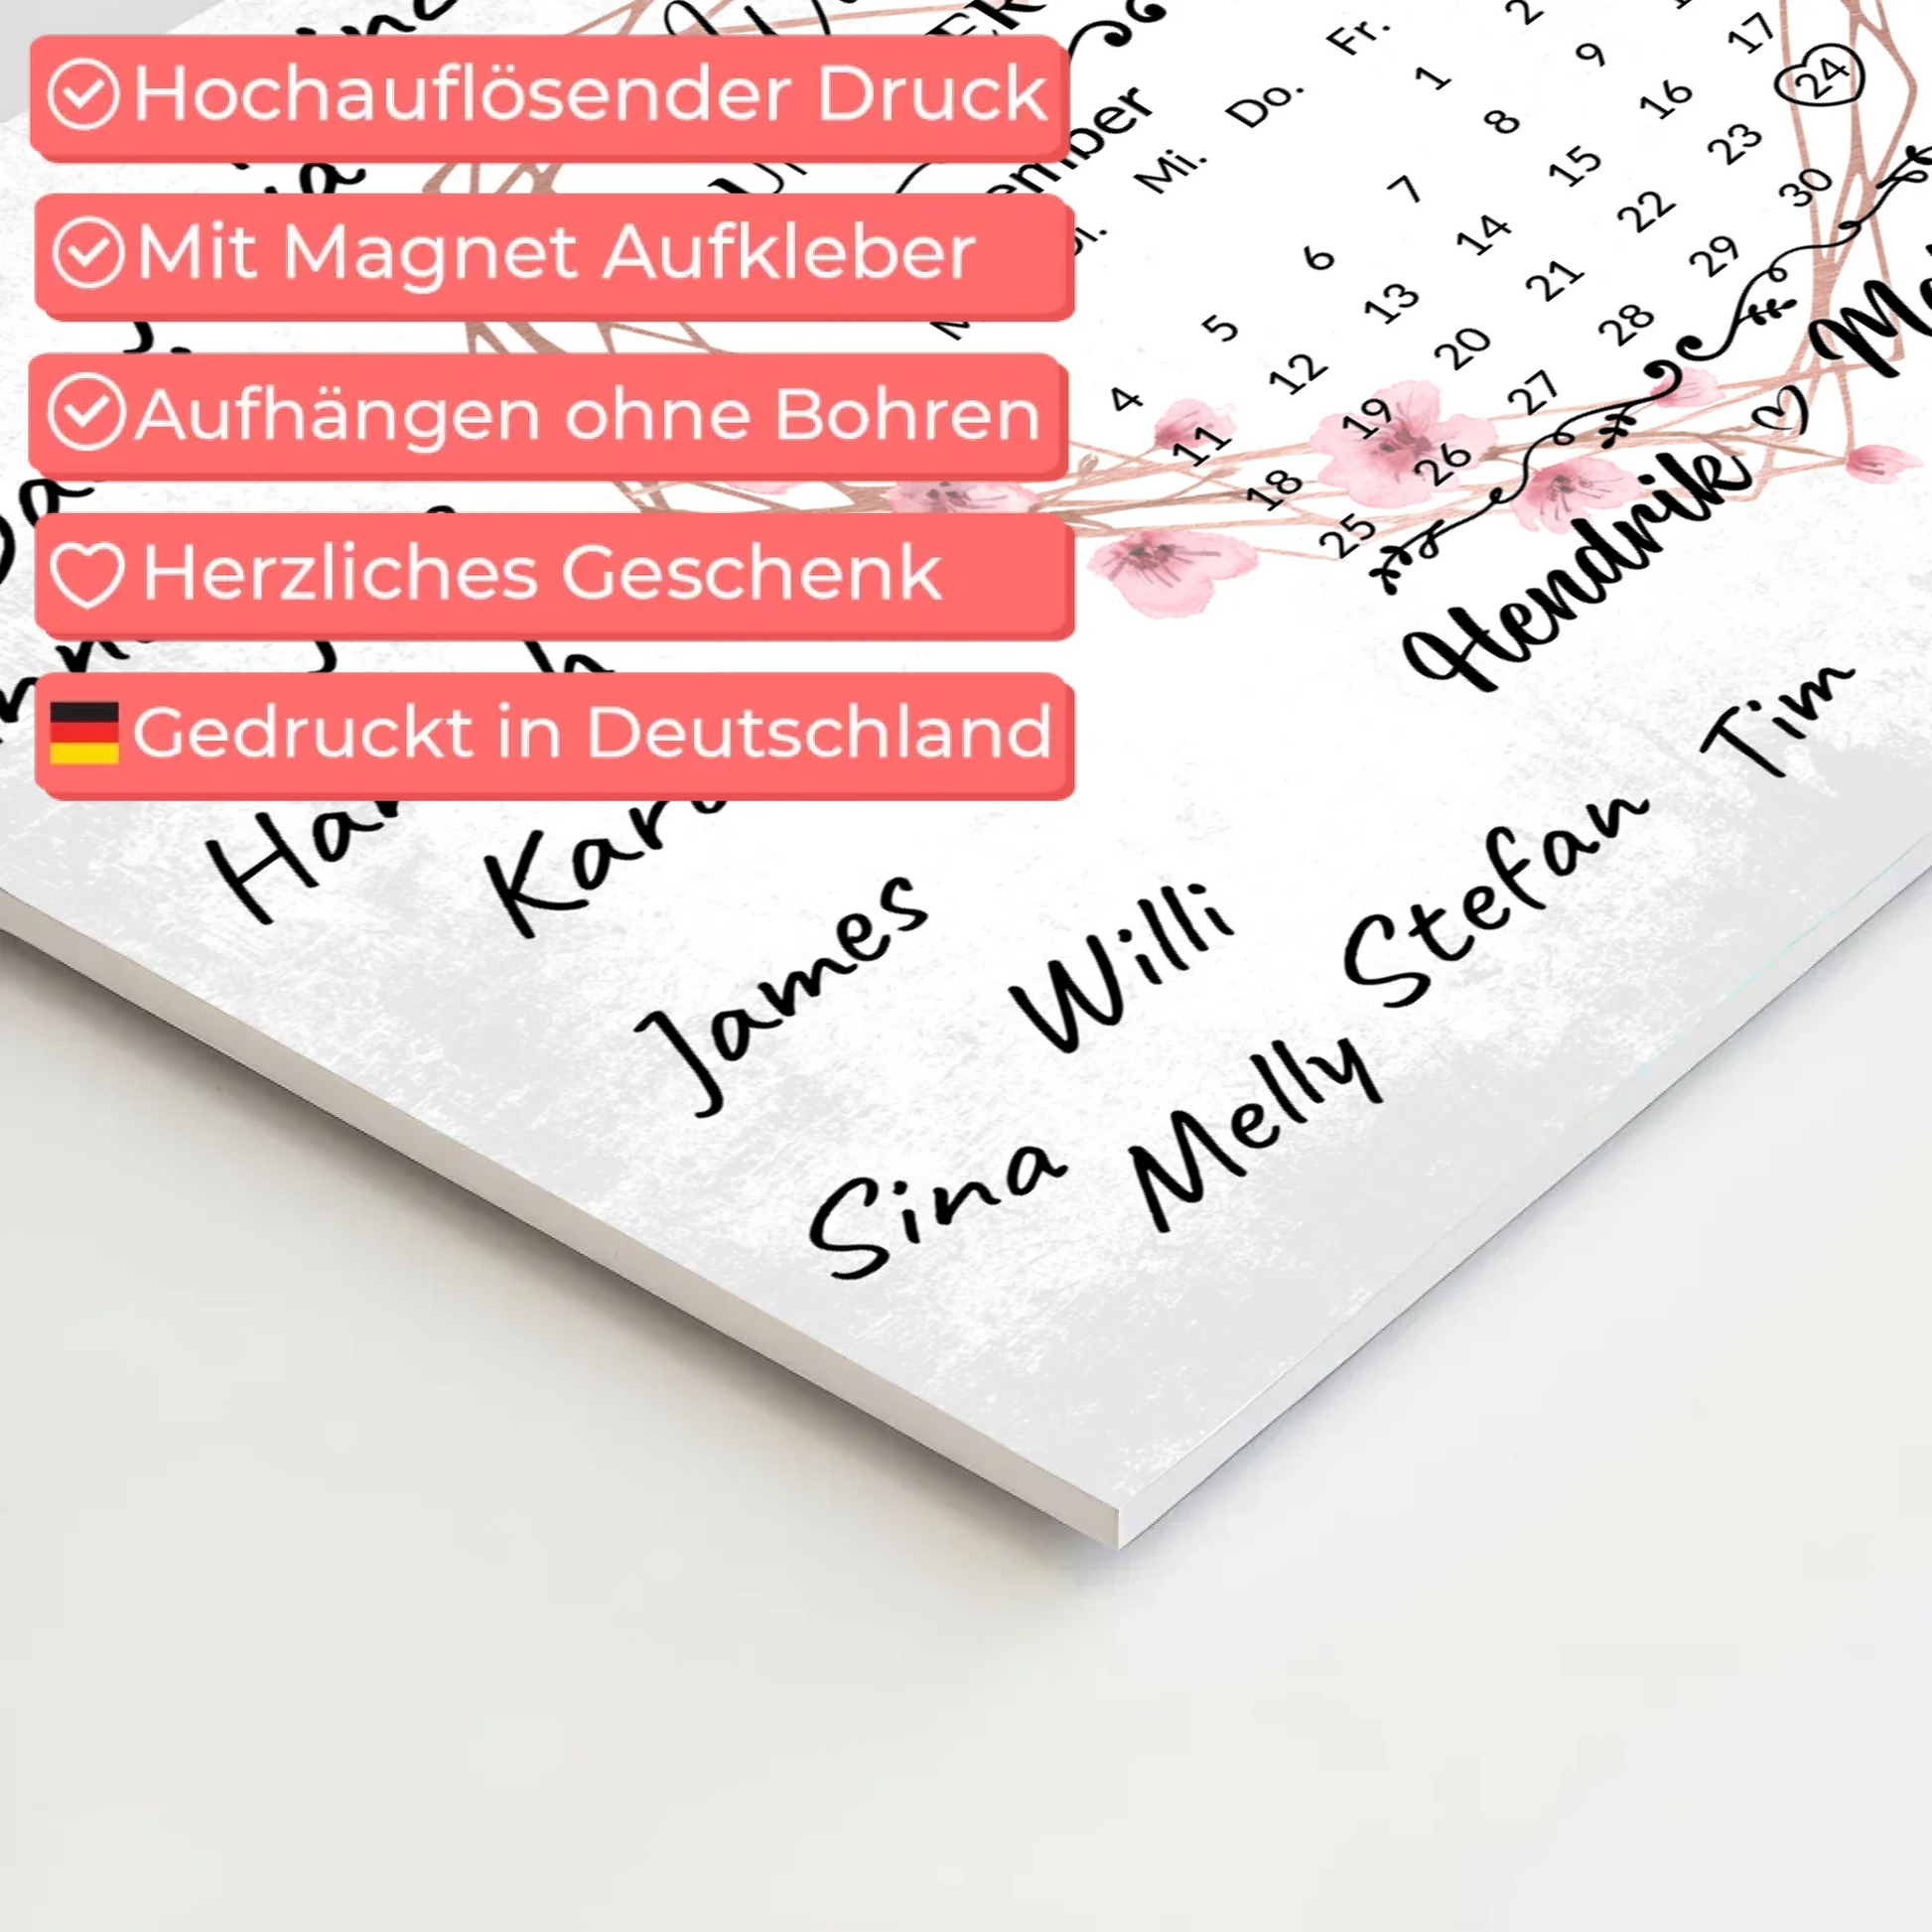 Hochauflösender Druck
Mit Magnet Aufkleber
Aufhängen ohne Bohren
Herzliches Geschenk
Gedruckt in Deutschland
Mi. Do. Fr.
1 2
4 5 6 7 8 9
11 12 13 14 15 16 17
18 19 20 21 22 23 24
25 26 27 28 29 30
Hendrik
James Willi Stefan Tim
Sina Melly